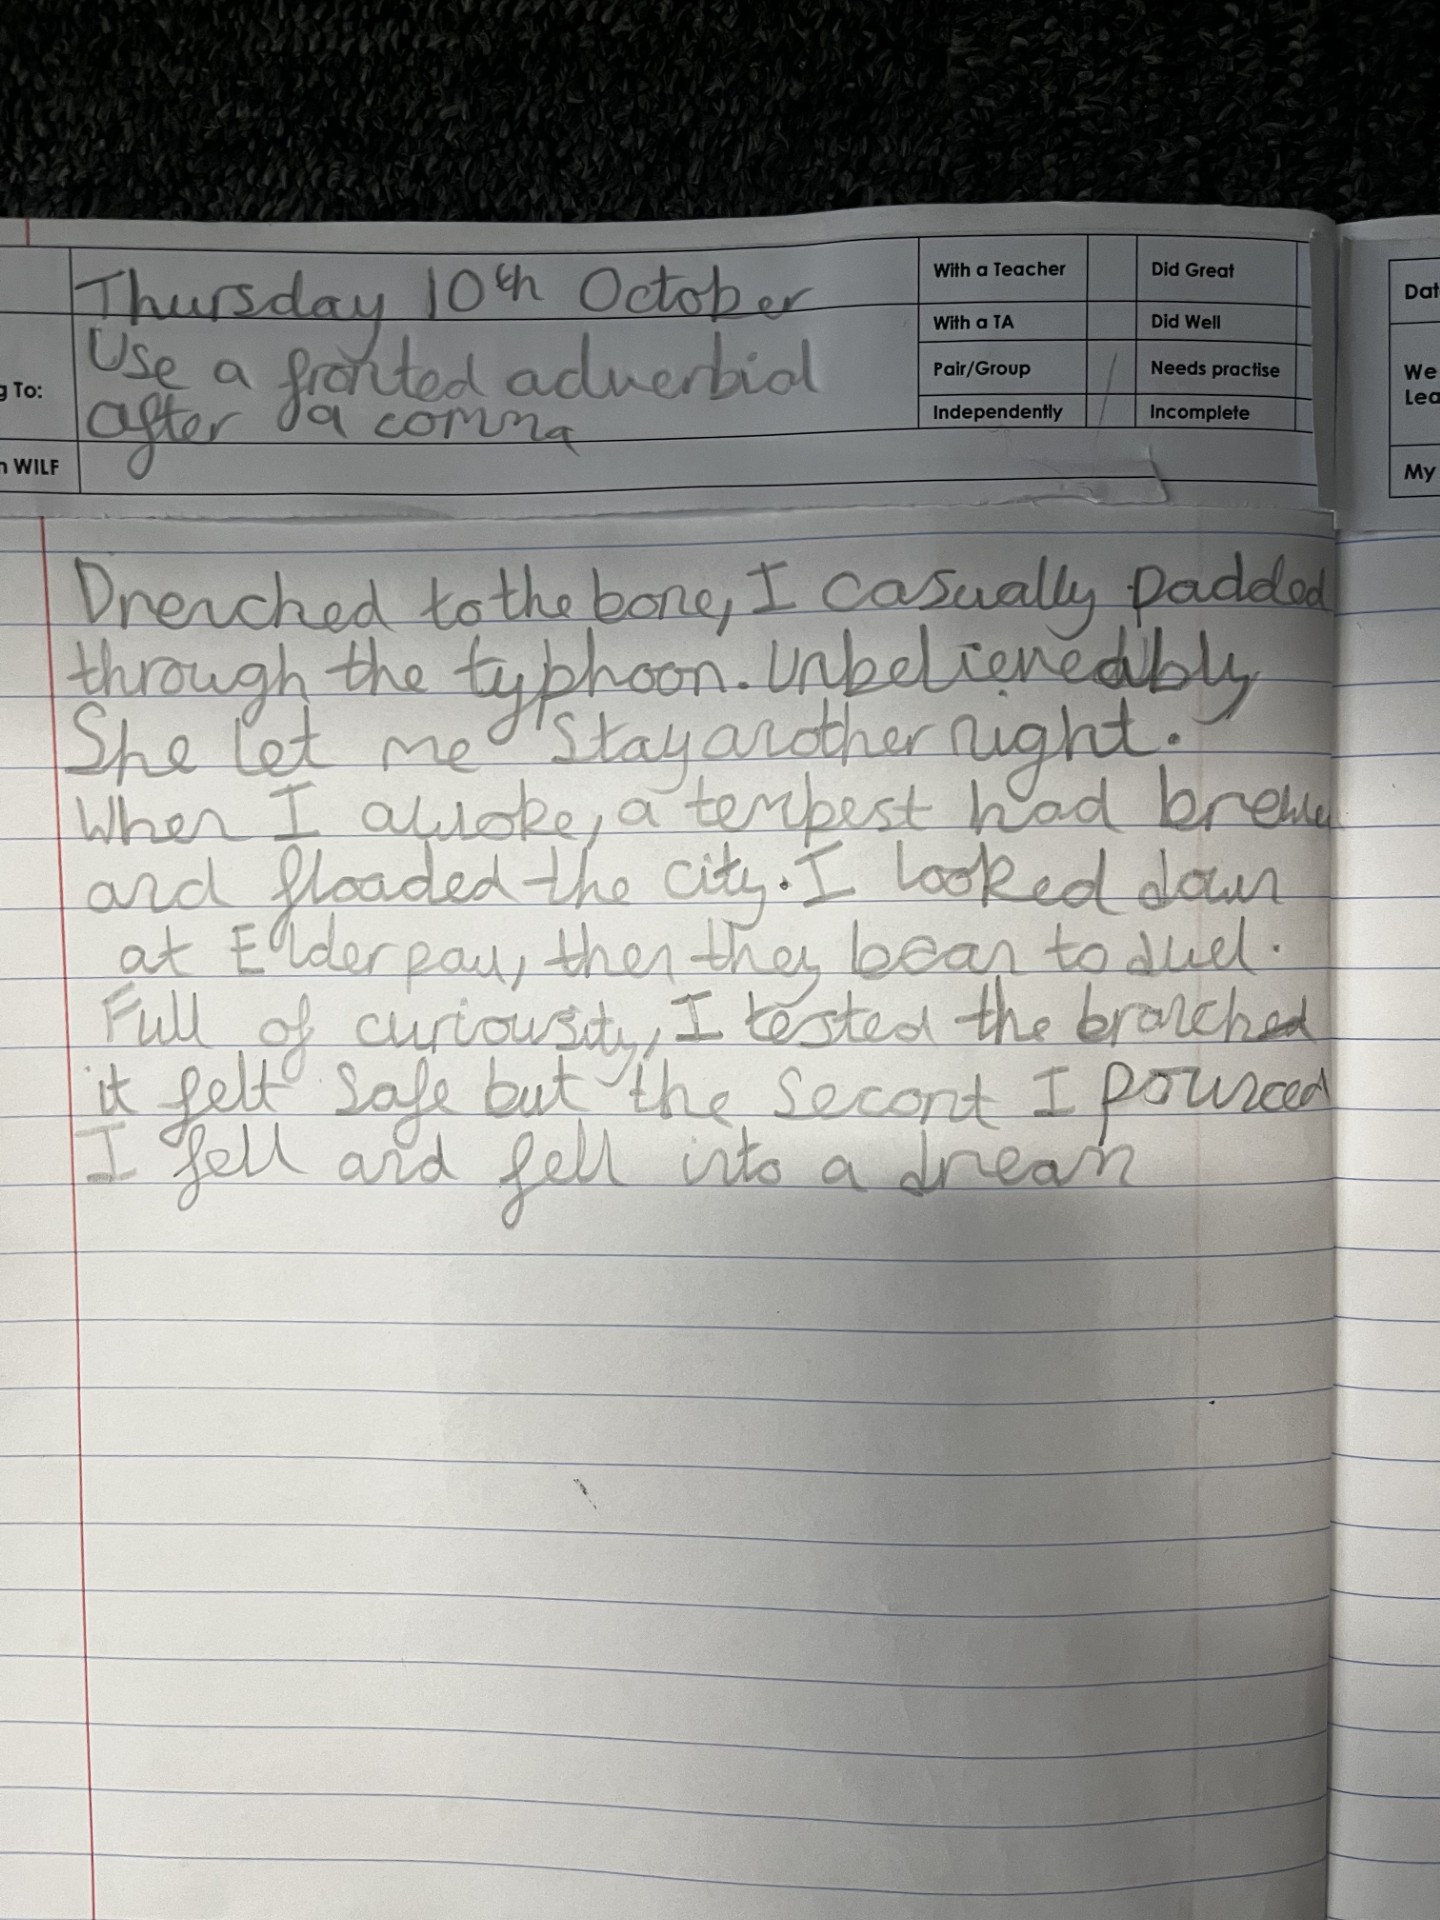 Thursday 10th October
With a Teacher
Did Great
Dat
Use a fronted adverbial
With a TA
Did Well
g To:
after a comma
Pair/Group
Needs practise
We
Lea
Independently
Incomplete
n WILF
My
Drenched to the bone, I casually padded
through the typhoon. Unbelievedibly
She let me stay another night.
When I awoke, a tempest had brew
and floaded the city. I looked down
at Elder paw, then they bean to duel.
Full of curiousity, I tested the branched
it felt safe but the secont I pounced
I fell and fell into a drean